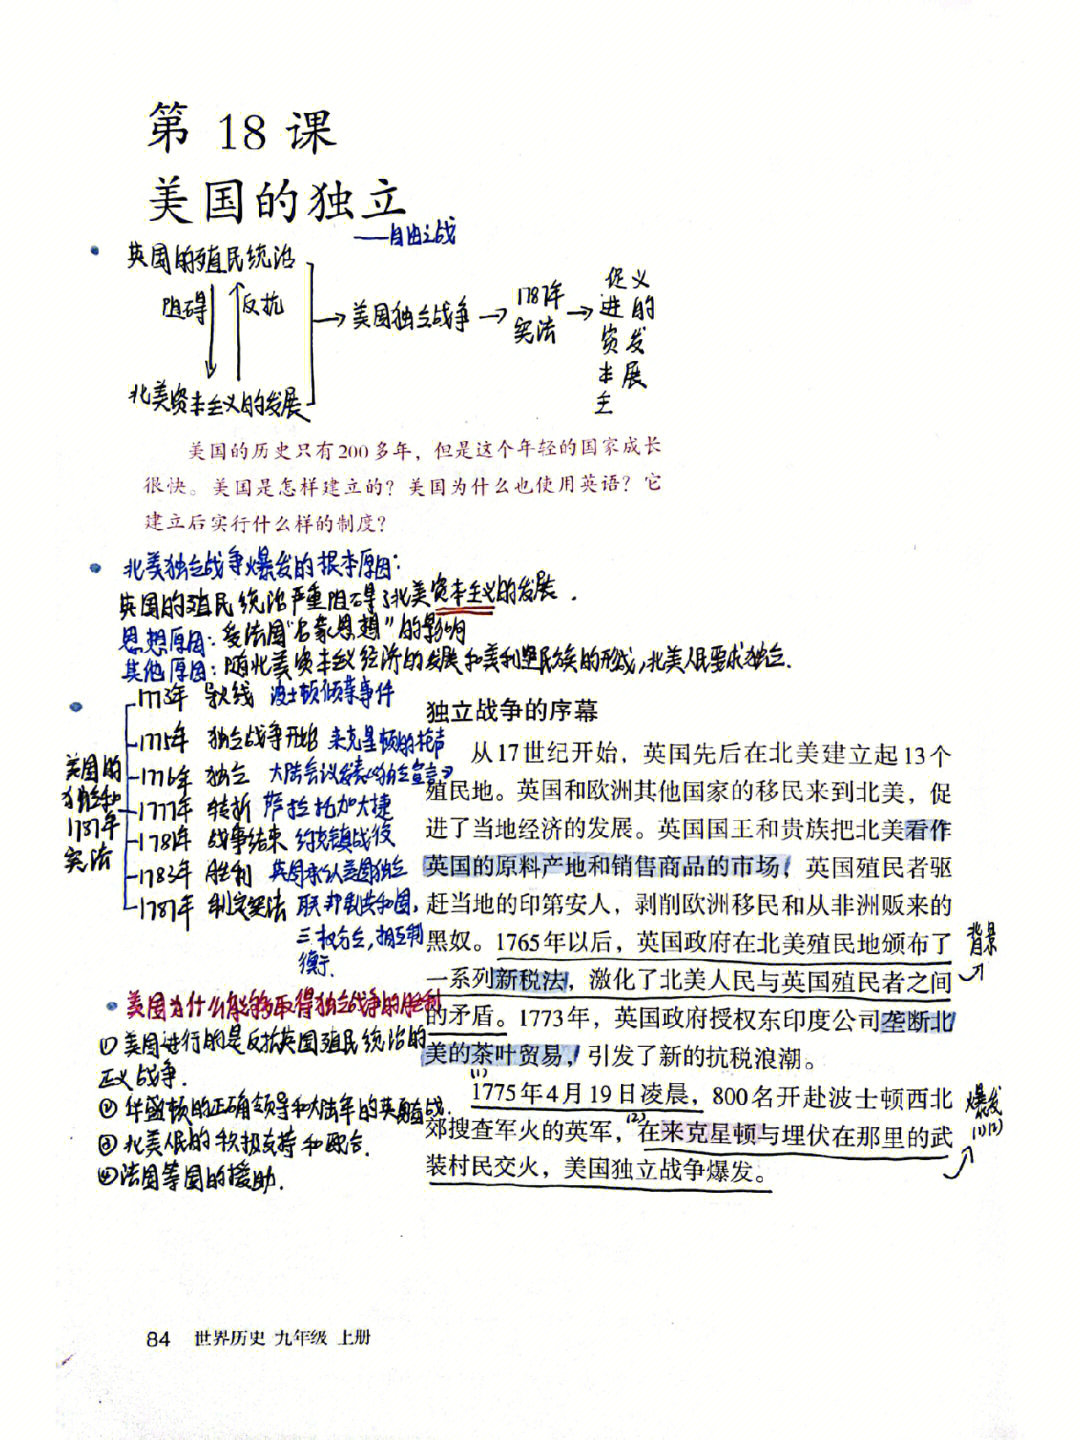 第 18 课
美国的独立
——自由之战
英国的殖民统治
阻碍 反抗
北美资本主义的发展
→美国独立战争→1787年宪法→促进资本主义的发展
美国的历史只有200多年，但是这个年轻的国家成长
很快。美国是怎样建立的？美国为什么也使用英语？它
建立后实行什么样的制度？
北美独立战争爆发的根本原因：
英国的殖民统治严重阻碍了北美资本主义的发展．
思想原因：受法国“启蒙思想”的影响
其他原因：随北美资本主义经济的发展和美利坚民族的形成，北美人民要求独立．
美国的独立和1787年宪法
1773年 导火线 波士顿倾茶事件
1775年 独立战争开始 来克星顿的枪声
1776年 独立 大陆会议发表《独立宣言》
1777年 转折 萨拉托加大捷
1781年 战事结束 约克镇战役
1783年 胜利 英国承认美国独立
1787年 制定宪法 联邦制共和国，
三权分立，相互制
衡．
美国为什么能够取得独立战争的胜利
①美国进行的是反抗英国殖民统治的
正义战争．
②华盛顿的正确领导和大陆军的英勇奋战．
③北美人民的积极支持和配合．
④法国等国的援助．
独立战争的序幕
从17世纪开始，英国先后在北美建立起13个
殖民地。英国和欧洲其他国家的移民来到北美，促
进了当地经济的发展。英国国王和贵族把北美看作
英国的原料产地和销售商品的市场，英国殖民者驱
赶当地的印第安人，剥削欧洲移民和从非洲贩来的
黑奴。1765年以后，英国政府在北美殖民地颁布了
一系列新税法，激化了北美人民与英国殖民者之间
的矛盾。1773年，英国政府授权东印度公司垄断北
美的茶叶贸易，引发了新的抗税浪潮。
背景
(1)
1775年4月19日凌晨，800名开赴波士顿西北
郊搜查军火的英军，(2)在来克星顿与埋伏在那里的武
装村民交火，美国独立战争爆发。
爆发
(1)(2)
84 世界历史 九年级 上册